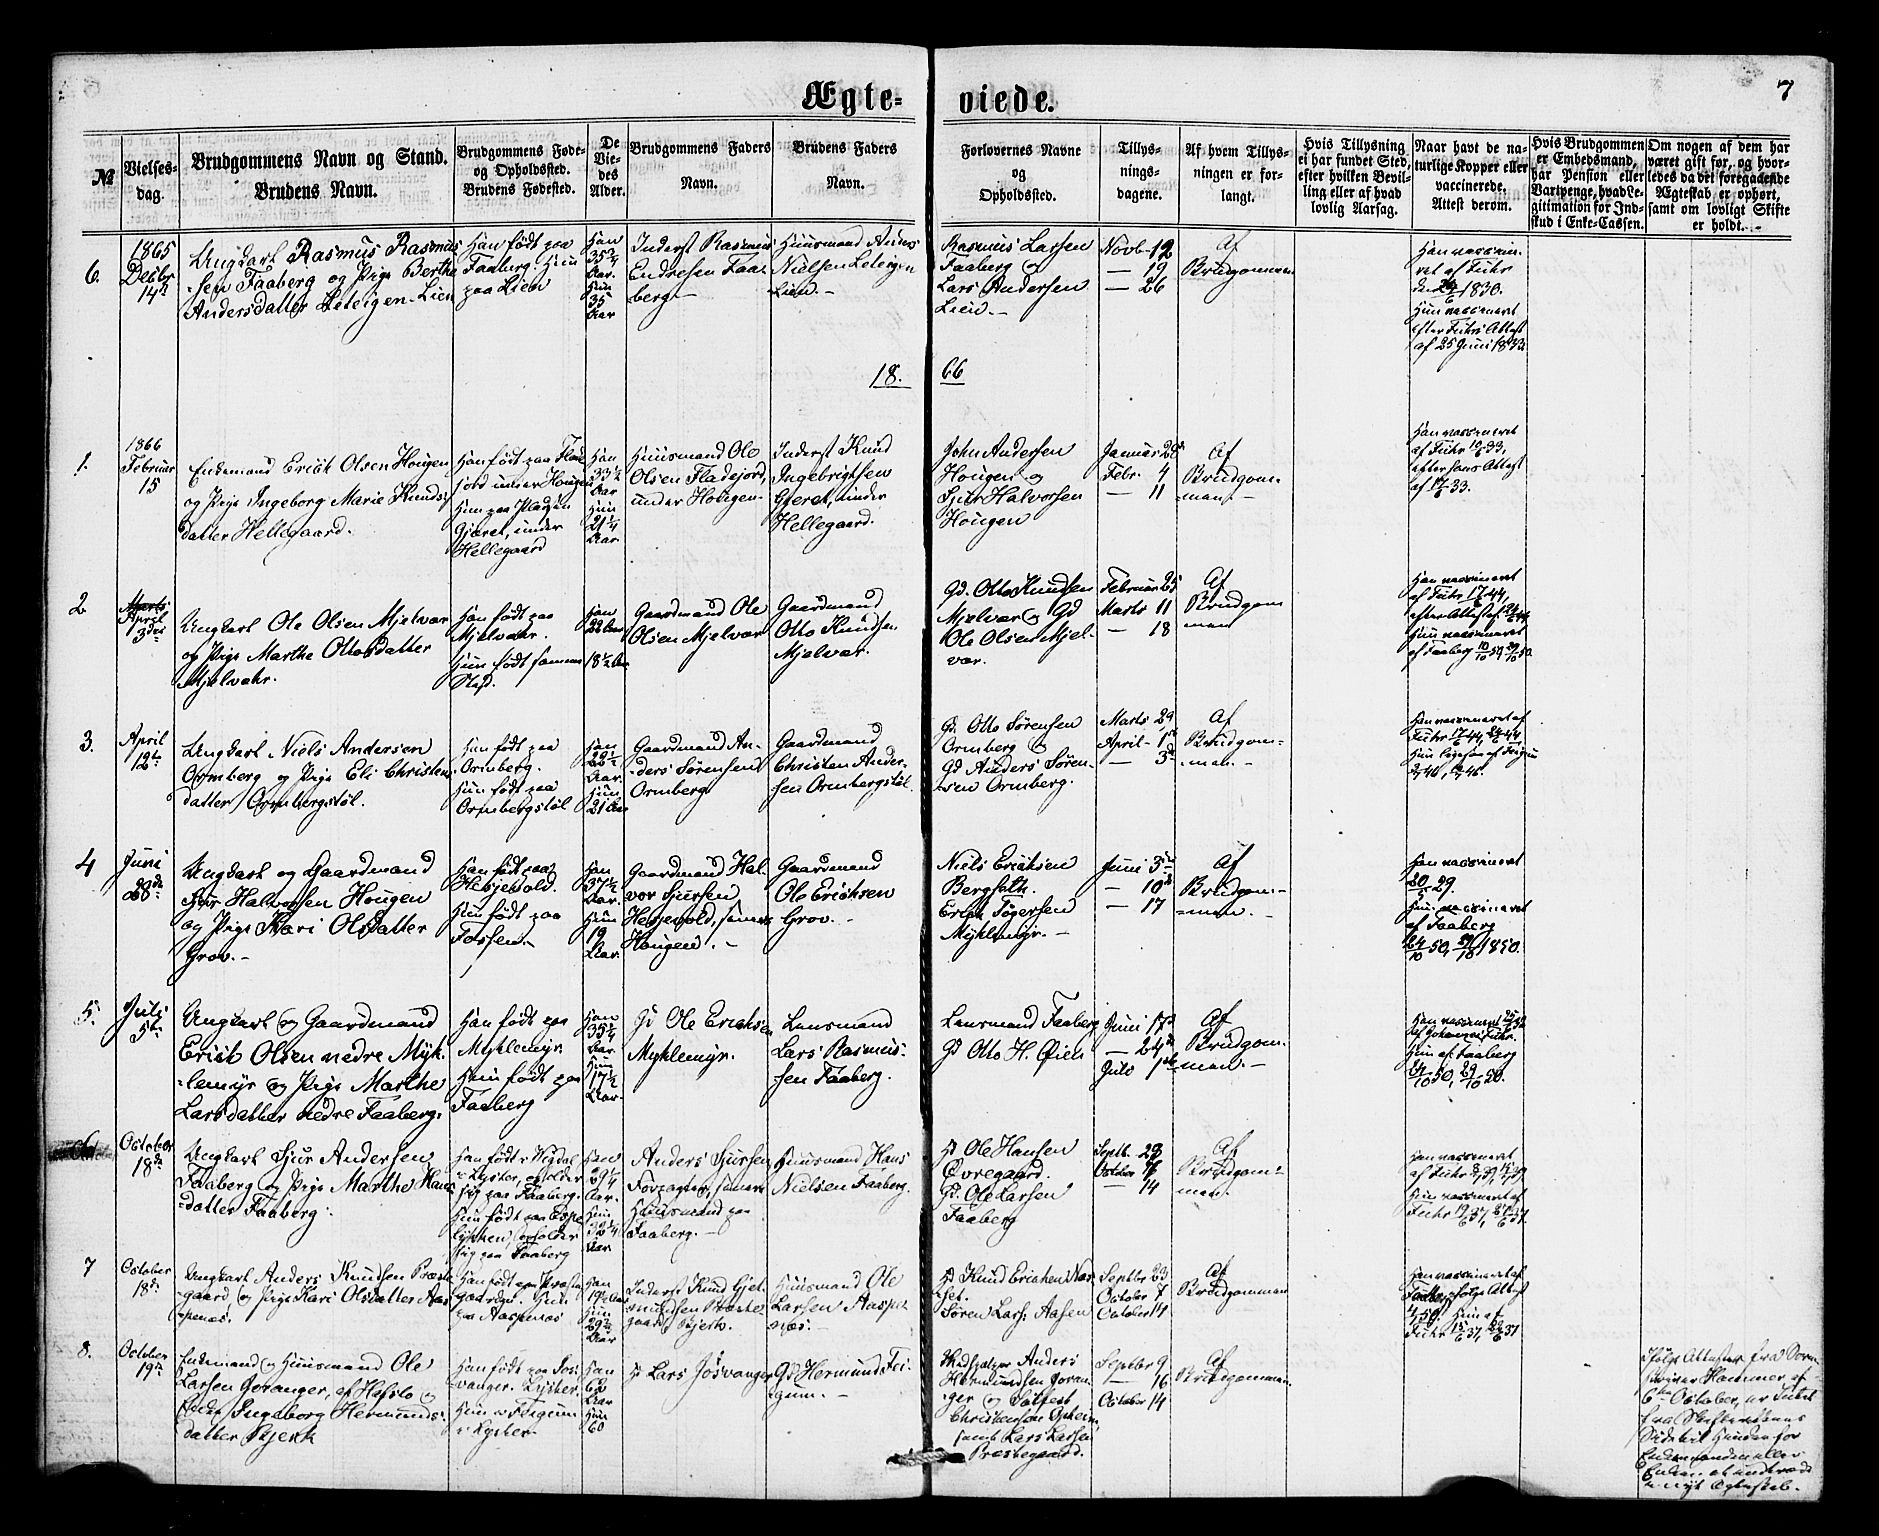 Ægte- viede.
7
№
Vielses-
dag.
Brudgommens Navn og Stand.
Brudens Navn.
Brudgommens Føde-
og Opholdssted.
Brudens Fødested.
De
Vie-
des
Alder.
Brudgommens Faders
Navn.
Brudens Faders
Navn.
Forlovernes Navne
og
Opholdssted.
Tillys-
nings-
dagene.
Af hvem Tillys-
ningen er for-
langt.
Hvis Tillysning
ei har fundet Sted,
efter hvilken Bevil-
ling eller af hvad
lovlig Aarsag.
Naar havt de na-
turlige Kopper eller
vaccinerede.
Attest derom.
Hvis Brudgommen
er Embedsmand,
har Pension eller
Vartpenge, hvad Le-
gitimation for Ind-
skud i Enke-Cassen.
Om nogen af dem har
været gift før, og hvor-
ledes da det foregaaende
Ægteskab er ophørt,
samt om lovligt Skifte
er holdt.
6.
1865
Decbr
14
Ungkarl Rasmus Rasmus
sen Faaberg og Pige Berthe
Andersdatter Leteigen-Lien
Han født paa
Faaberg. Hun
paa Lien
Han
35¾
Aar.
Hun
35
Aar
Inderst Rasmus
Endresen Faa-
berg-
Huusmand Anders
Nielsen Leteigen
Lien.-
Rasmus Larsen
Faaberg og
Lars Andersen
Lien.-
Novb. 12
- 19
- 26
Af
Brudgommen
Han vassine-
ret af Fuhr
1830.
Hun vassineret
efter Fuhrs Attest
af 25 Juni 1833.
18. 66
1.
1866
Februar
15
Enkemand Erick Olsen Hougen
og Pige Ingeborg Marie Knuds-
datter Hellegaard.
Han født paa Flade
jord under Hougen
Hun paa Pladsen
Gjæret, under
Hellegaard
Han
33½
Aar
Hun
21¼
Aar
Huusmand Ole
Olsen Fladejord,
under Hougen-
Inderst Knud
Ingebrigtsen
Gjeret, under
Hellegaard.
John Andersen
Hougen og
Sjur Halvorsen
Hougen
Januar 28
Febr. 4
- 11
Af
Brudgom-
man.-
Han vassineret
af Fuhr
efter hans Attest
af 33.
2
April
3die
Ungkarl Ole Olsen Mjelvær
og Pige Marthe Ottosdatter
Mjelvahr.
Han født paa
Mjelvahr.
Hun født samme
Sted.
Han
22 Aar
18½ Aar
Gaardmand Ole
Olsen Mjelvær
Gaardmand
Otto Knudsen
Mjelvær.
Gd. Otto Knudsen
Mjelvær og Gd
Ole Olsen Mjel-
vær.
Februar 25
Marts 11
- 18
Af
Brudgom
man
Han vassineret
af Fuhr
efter Attest af
Hun vassineret
af Faaberg
3.
April
12te
Ungkarl Niels Andersen
Ormberg og Pige Eli Christens-
datter Ormbergstøl.
Han født paa
Ormberg.
Hun født paa
Ormbergstøl
Han
Aar.
Hun
21 Aar
Gaardmand An-
ders Sørensen
Ormberg
Gaardmand
Christen Ander-
sen Ormbergstøl.
Gd. Otto Sørensen
Ormberg og
Gd Anders Søren-
sen Ormberg.
Marts 29
April - 1ste
- 3
Af
Brudgom-
man.-
Han vassineret af
Fuhr
4
Juni
28de
Ungkarl og Gaardmand
Sjur Halvorsen Hougen
og Pige Kari Olsdatter
Grov.-
Han født paa
Hesjevold.
Hun født paa
Fossen.-
Han
37½
Aar.
Hun
19
Aar.
Gaardmand Hal-
vor Sjursen
Hesjevold,
Hougen.-
Gaardmand
Ole Ericksen
Grov.-
Niels Ericksen
Bergseth.
Erick Tøgersen
Myklemyr.-
Juni 3
- 10
- 17
Af
Brudgom-
man.-
Han vassineret
29.
Hun vassineret
af Faaberg
50, 1850.
5.
Juli
5te
Ungkarl og Gaardmand
Erick Olsen nedre Myk-
lemyr og Pige Marthe
Larsdatter nedre Faaberg.
Han født paa
Myklemyr
Hun født paa
Faaberg
Han
35¼
Aar.
Hun
17½
Aar.
Gd Ole Ericksen
Myklemyr.
Lensmand
Lars Rasmus-
sen Faaberg.
Lensmand Faaberg
Gd Otto H. Øien
Juni 17
- 24
Juli 1ste
Af
Brudgom-
man.-
Han vassineret
Hun af Faaberg
6
October
18de
Ungkarl Sjur Andersen
Faaberg og Pige Marthe Hans
datter Faaberg.
i Lyster, opholder
sig paa Faaberg.
Hun født paa Espe
opholder
sig paa Faaberg
Han
29¼
Aar.
Hun
Aar
Anders Sjursen
Huusmand paa
Faaberg.-
Huusmand Hans
Nielsen Faaberg.
Gd Ole Hansen
Øvregaard.
Gd. Ole Larsen
Faaberg
Septb. 29
October
- 14
Af
Brudgom-
man.
Han vassineret
af Fuhr
Hun vassineret af
Fuhr
7
October
18
Ungkarl Anders Knudsen Præste
gaard og Pige Kari Olsdatter Aas-
penæs.
Han født paa Præste
gaarden. Hun
paa Aaspenæs
Han
Hun
29½
Aar
Inderst Knud
Præste
gaard
Huusmand Ole
Larsen Aaspe-
næs.-
Gd Knud Ericksen Næs
Søren Lars: Aasen
Septbr 23
October 7
October 14
Af
Brudgommen
Han vassineret af
Attest
Hun af
Fuhr
8.
October
19
Enkemand og Huusmand Ole
Larsen Joranger, af Hafslo og
Enke Ingeborg Hermunds-
datter Bjerk
Han født paa Jos-
vanger. Lyster.
Hun Feigum
i Lyster.
Han
62
Aar
Hun
60
Gd Lars Josvanger
Gd Hermund Fei-
gum.-
Anders
Hermundsen Joran-
ger og
Christensen Opheim,
samt Lars Larsen
Præstegaard.
Septbr 9
- 16
October 14
Af
Brudgommen.
Ifølge Attester fra Soren-
skriver Hammer af
6te October, er Intet
fra Skifterettens
Side til Hinder for
Enkemanden eller
Enken at indtræde
i nyt Ægteskab.